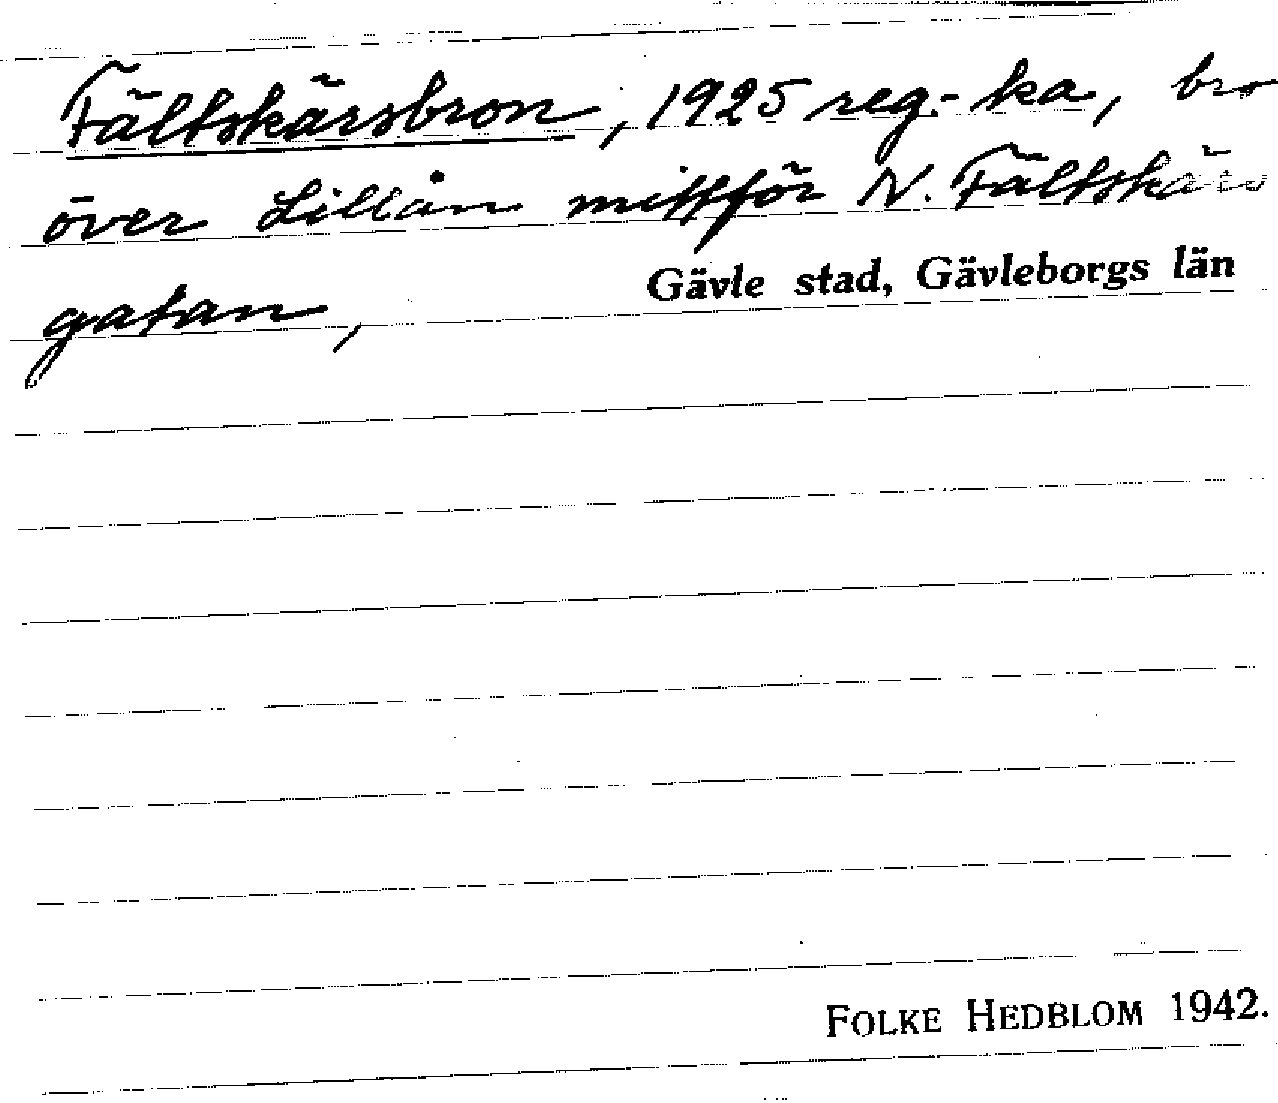 Fältskärsbron, 1925 reg.-ka, bro
över Lillån mittför N. Fältskärs
gatan,
Gävle stad, Gävleborgs län
FOLKE HEDBLOM 1942.